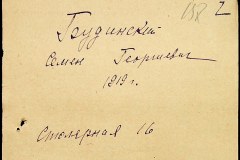 158 2
Грудинский
Семен Георгиевич
1919 г.
Столярная 16